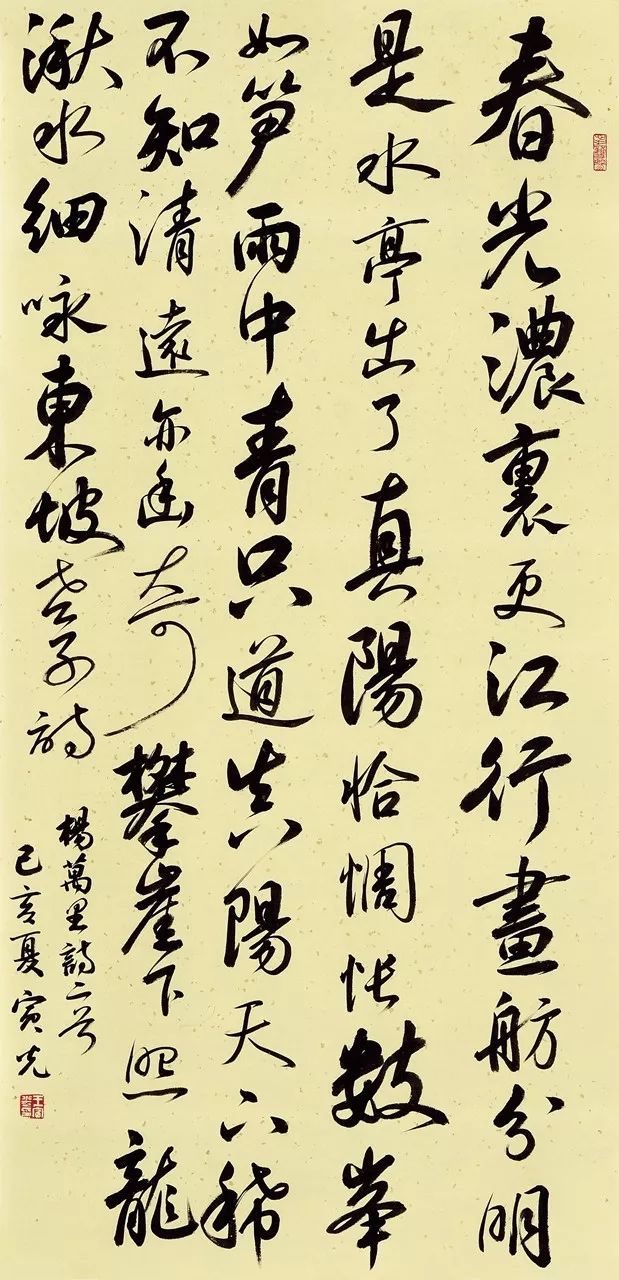 春光濃裏更江行畫舫分明
是水亭出了真陽恰惆悵數峯
如笋雨中青只道真陽天下稀
不知清遠亦幽奇攀崖下照龍
湫水細咏東坡老子詩
楊萬里詩二首
己亥夏寅光